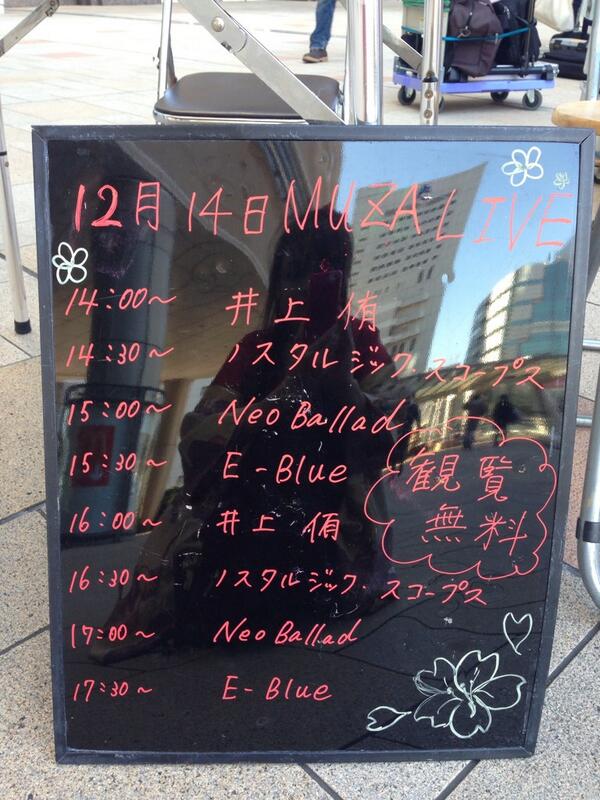 12月14日 MUZA LIVE
14:00〜 井上 侑
14:30〜 ノスタルジック・スコープス
15:00〜 Neo Ballad
15:30〜 E-Blue
観覧
無料
16:00〜 井上 侑
16:30〜 ノスタルジック・スコープス
17:00〜 Neo Ballad
17:30〜 E-Blue